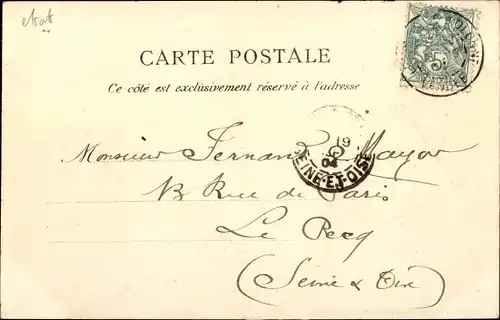 etat
CARTE POSTALE
Ce côté est exclusivement réservé à l'adresse
5
19
04
SEINE-ET-OISE
Monsieur Fernand Mayor
13 Rue de Paris
Le Pecq
(Seine & Oise)